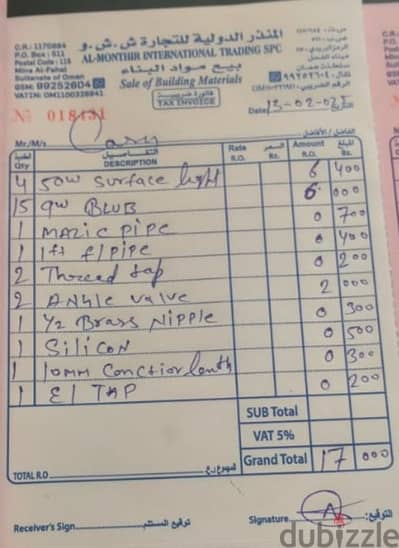 المنذر الدولية للتجارة ش.ش.و
C.R.: 1170884
P.O. Box : 511
Postal Code : 115
Mina Al-Fahal
Sultanate of Oman
GSM: 99252604
VATIN: OM1100338941
AL-MONTHIR INTERNATIONAL TRADING SPC
بيع مواد البناء
Sale of Building Materials
فاتورة ضريبية
TAX INVOICE
ميناء الفحل
سلطنة عمان
№ 018431
Date 13-02-
Mr./M/s Cash الفاضل / الأفاضل
Qty التفاصيل DESCRIPTION Rate R.O. السعر Bz. Amount R.O. المبلغ Bz.
4 50w surface light 6 400
15 9w BLUB 6 000
1 Mazic pipe 0 700
1 1ft f/pipe 0 400
2 Thread tap 0 200
2 Angle valve 2 000
1 1/2 Brass Nipple 0 300
1 Silicon 0 500
1 10mm 0 300
1 El TAP 0 200
SUB Total
VAT 5%
TOTAL R.O. المجموع ر.ع. Grand Total 17 000
Receiver's Sign. توقيع المستلم Signature التوقيع
dubizzle